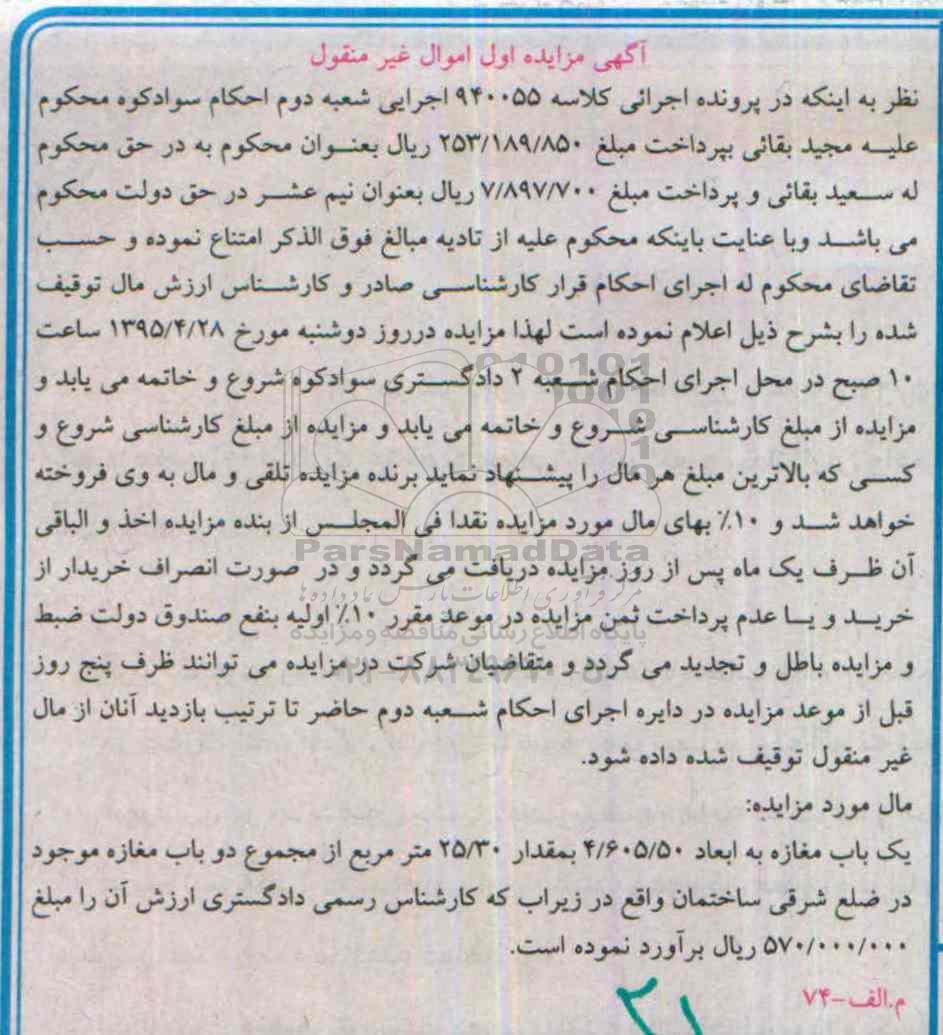 آگهی مزایده اول اموال غیر منقول
نظر به اینکه در پرونده اجرائی کلاسه ۹۴۰۰۵۵ اجرایی شعبه دوم احکام سوادکوه محکوم
علیه مجید بقائی بپرداخت مبلغ ۲۵۳/۱۸۹/۸۵۰ ریال بعنوان محکوم به در حق محکوم
له سعید بقائی و پرداخت مبلغ ۷/۸۹۷/۷۰۰ ریال بعنوان نیم عشر در حق دولت محکوم
می باشد وبا عنایت باینکه محکوم علیه از تادیه مبالغ فوق الذکر امتناع نموده و حسب
تقاضای محکوم له اجرای احکام قرار کارشناسی صادر و کارشناس ارزش مال توقیف
شده را بشرح ذیل اعلام نموده است لهذا مزایده درروز دوشنبه مورخ ۱۳۹۵/۴/۲۸ ساعت
۱۰ صبح در محل اجرای احکام شعبه ۲ دادگستری سوادکوه شروع و خاتمه می یابد و
مزایده از مبلغ کارشناسی شروع و خاتمه می یابد و مزایده از مبلغ کارشناسی شروع و
کسی که بالاترین مبلغ هر مال را پیشنهاد نماید برنده مزایده تلقی و مال به وی فروخته
خواهد شد و ۱۰٪ بهای مال مورد مزایده نقدا فی المجلس از بنده مزایده اخذ و الباقی
ParsNamadData
آن ظرف یک ماه پس از روز مزایده دریافت می گردد و در صورت انصراف خریدار از
مرکز فرآوری اطلاعات پارس نماد داده ها
خرید و یا عدم پرداخت ثمن مزایده در موعد مقرر ۱۰٪ اولیه بنفع صندوق دولت ضبط
پایگاه اطلاع رسانی مناقصه و مزایده
و مزایده باطل و تجدید می گردد و متقاضیان شرکت در مزایده می توانند ظرف پنج روز
قبل از موعد مزایده در دایره اجرای احکام شعبه دوم حاضر تا ترتیب بازدید آنان از مال
غیر منقول توقیف شده داده شود.
مال مورد مزایده:
یک باب مغازه به ابعاد ۴/۶۰۵/۵۰ بمقدار ۲۵/۳۰ متر مربع از مجموع دو باب مغازه موجود
در ضلع شرقی ساختمان واقع در زیراب که کارشناس رسمی دادگستری ارزش آن را مبلغ
۵۷۰/۰۰۰/۰۰۰ ریال برآورد نموده است.
م.الف-۷۴
۲۱